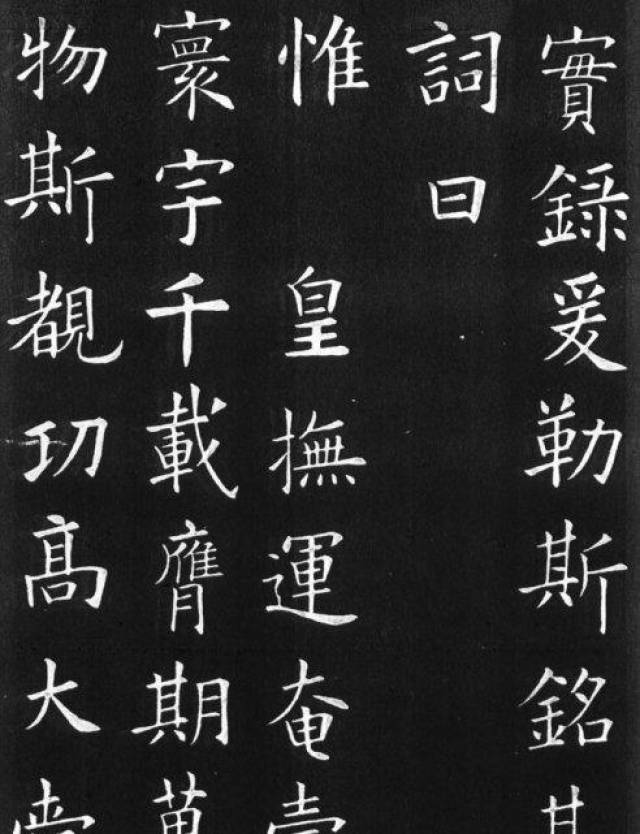 實錄爰勒斯銘其
詞曰
惟 皇撫運奄壹
寰宇千載膺期萬
物斯覩功高大